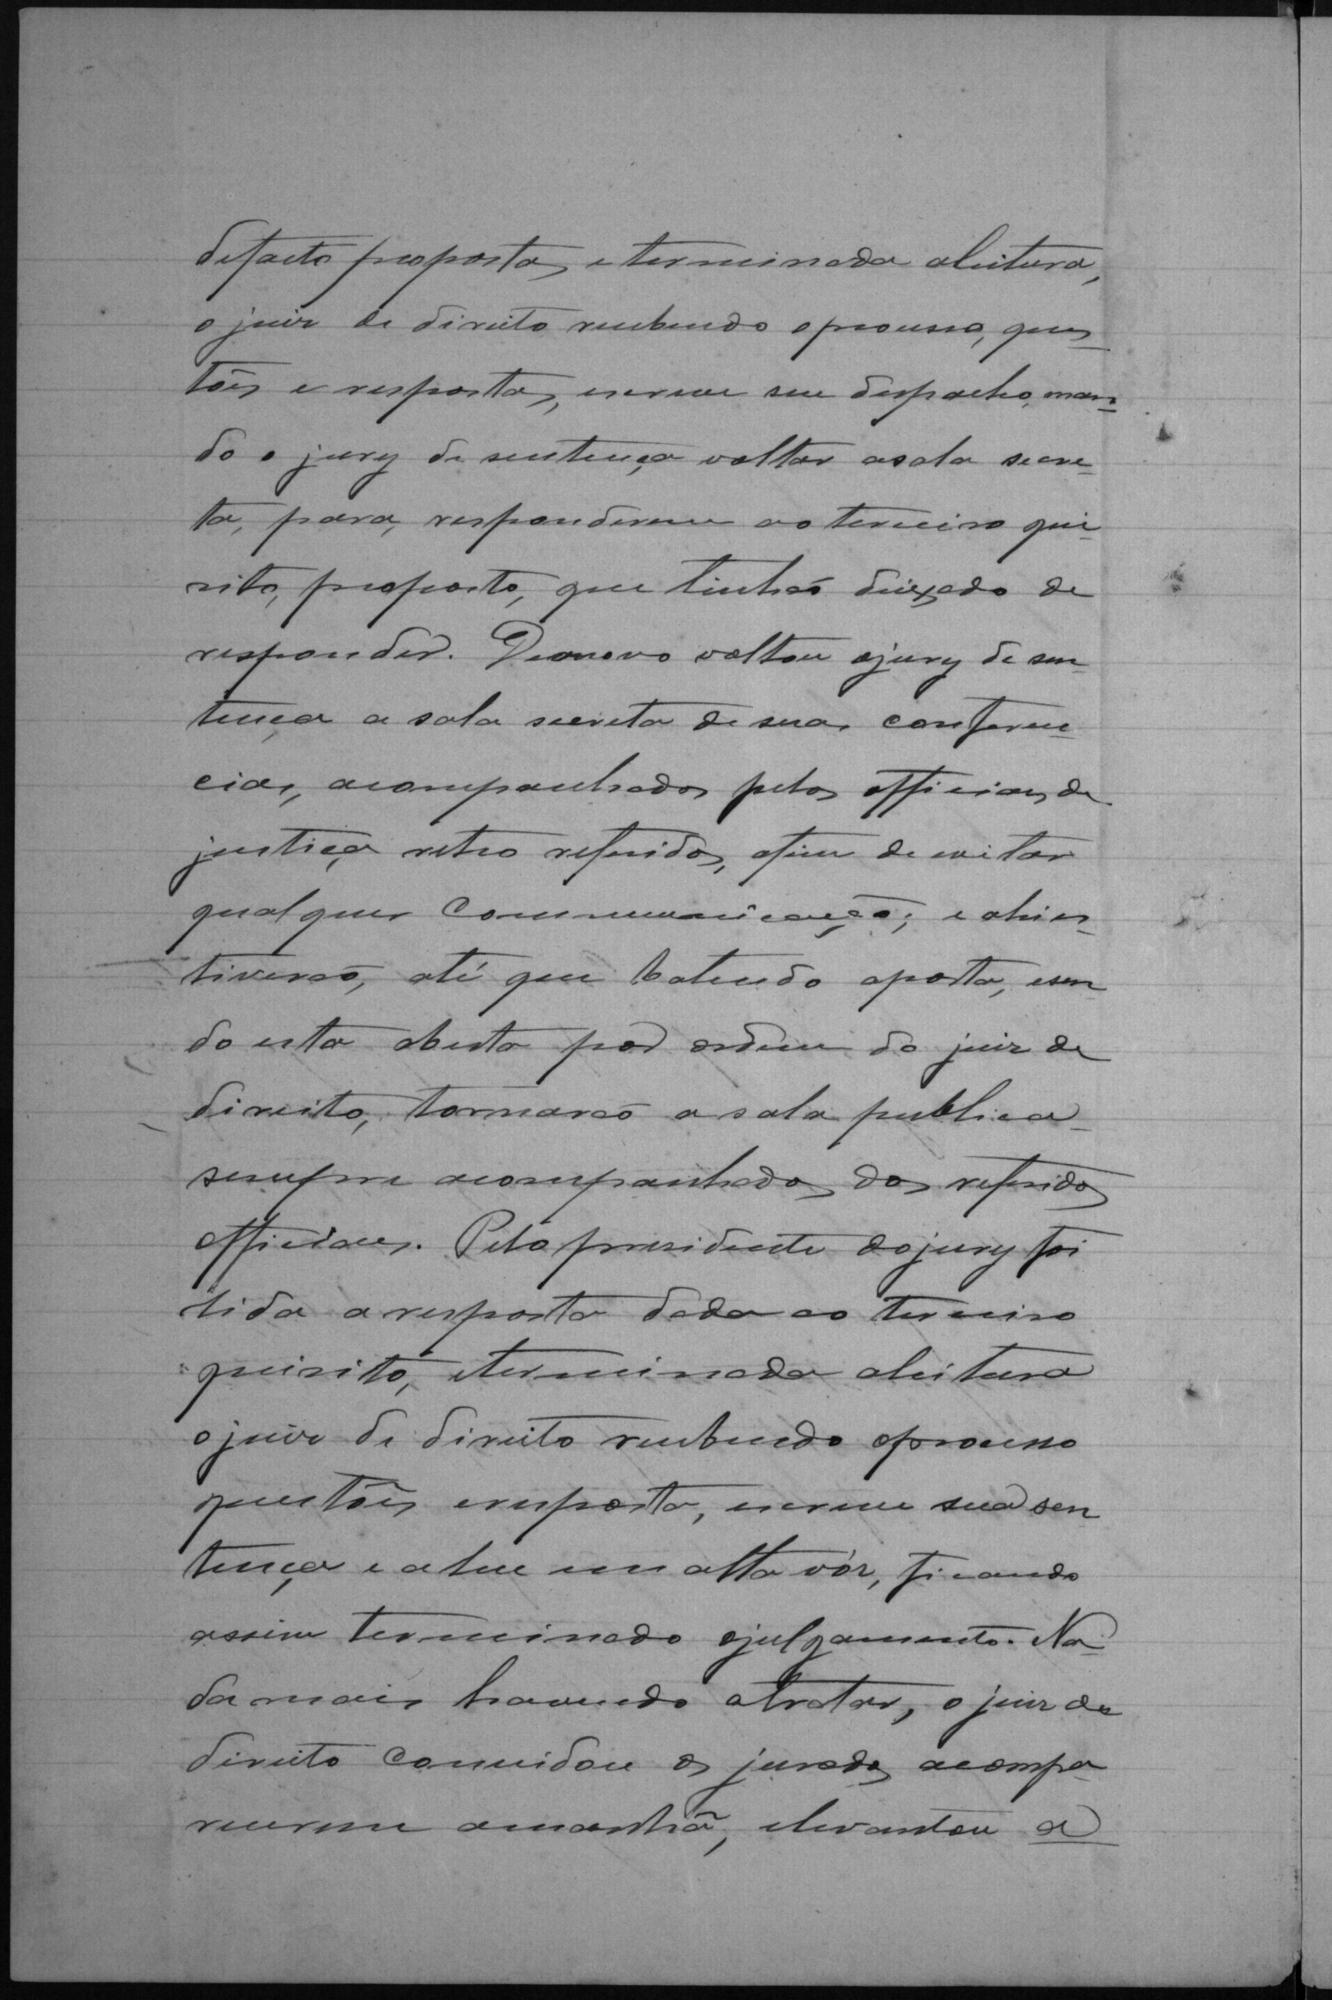 defacto propostas, e terminada aleitura,
o juiz de direito recebendo o processo, ques-
tões e respostas, escreve seu despacho, man-
do o jury de sentença voltar asala secre-
ta, para, responderem ao terceiro qui-
sito, proposto, que tinhão deixado de
responder. Denovo voltou ojury de sen-
tença a sala secreta de suas conferen-
cias, acompanhados pelos officiaes de
justiça retro referidos, afim de evitar
qualquer communicação; e ahi es-
tiverão, até que batendo aporta, esen
do esta aberta por ordem do juiz de
direito, tornarão a sala publica
sempre acompanhados dos referidos
officiaes. Pelo presidente dojury foi
lida a resposta dada ao terceiro
quisito, eterminada aleitura
o juiz de direito recebendo oprocesso
questões eresposta, escreve sua sen
tença e a leu em alta vóz, ficando
assim terminado ojulgamento. Na-
da mais havendo atratar, o juiz de
direito convidou os jurados acompa-
recerem amanhã, elevantou a